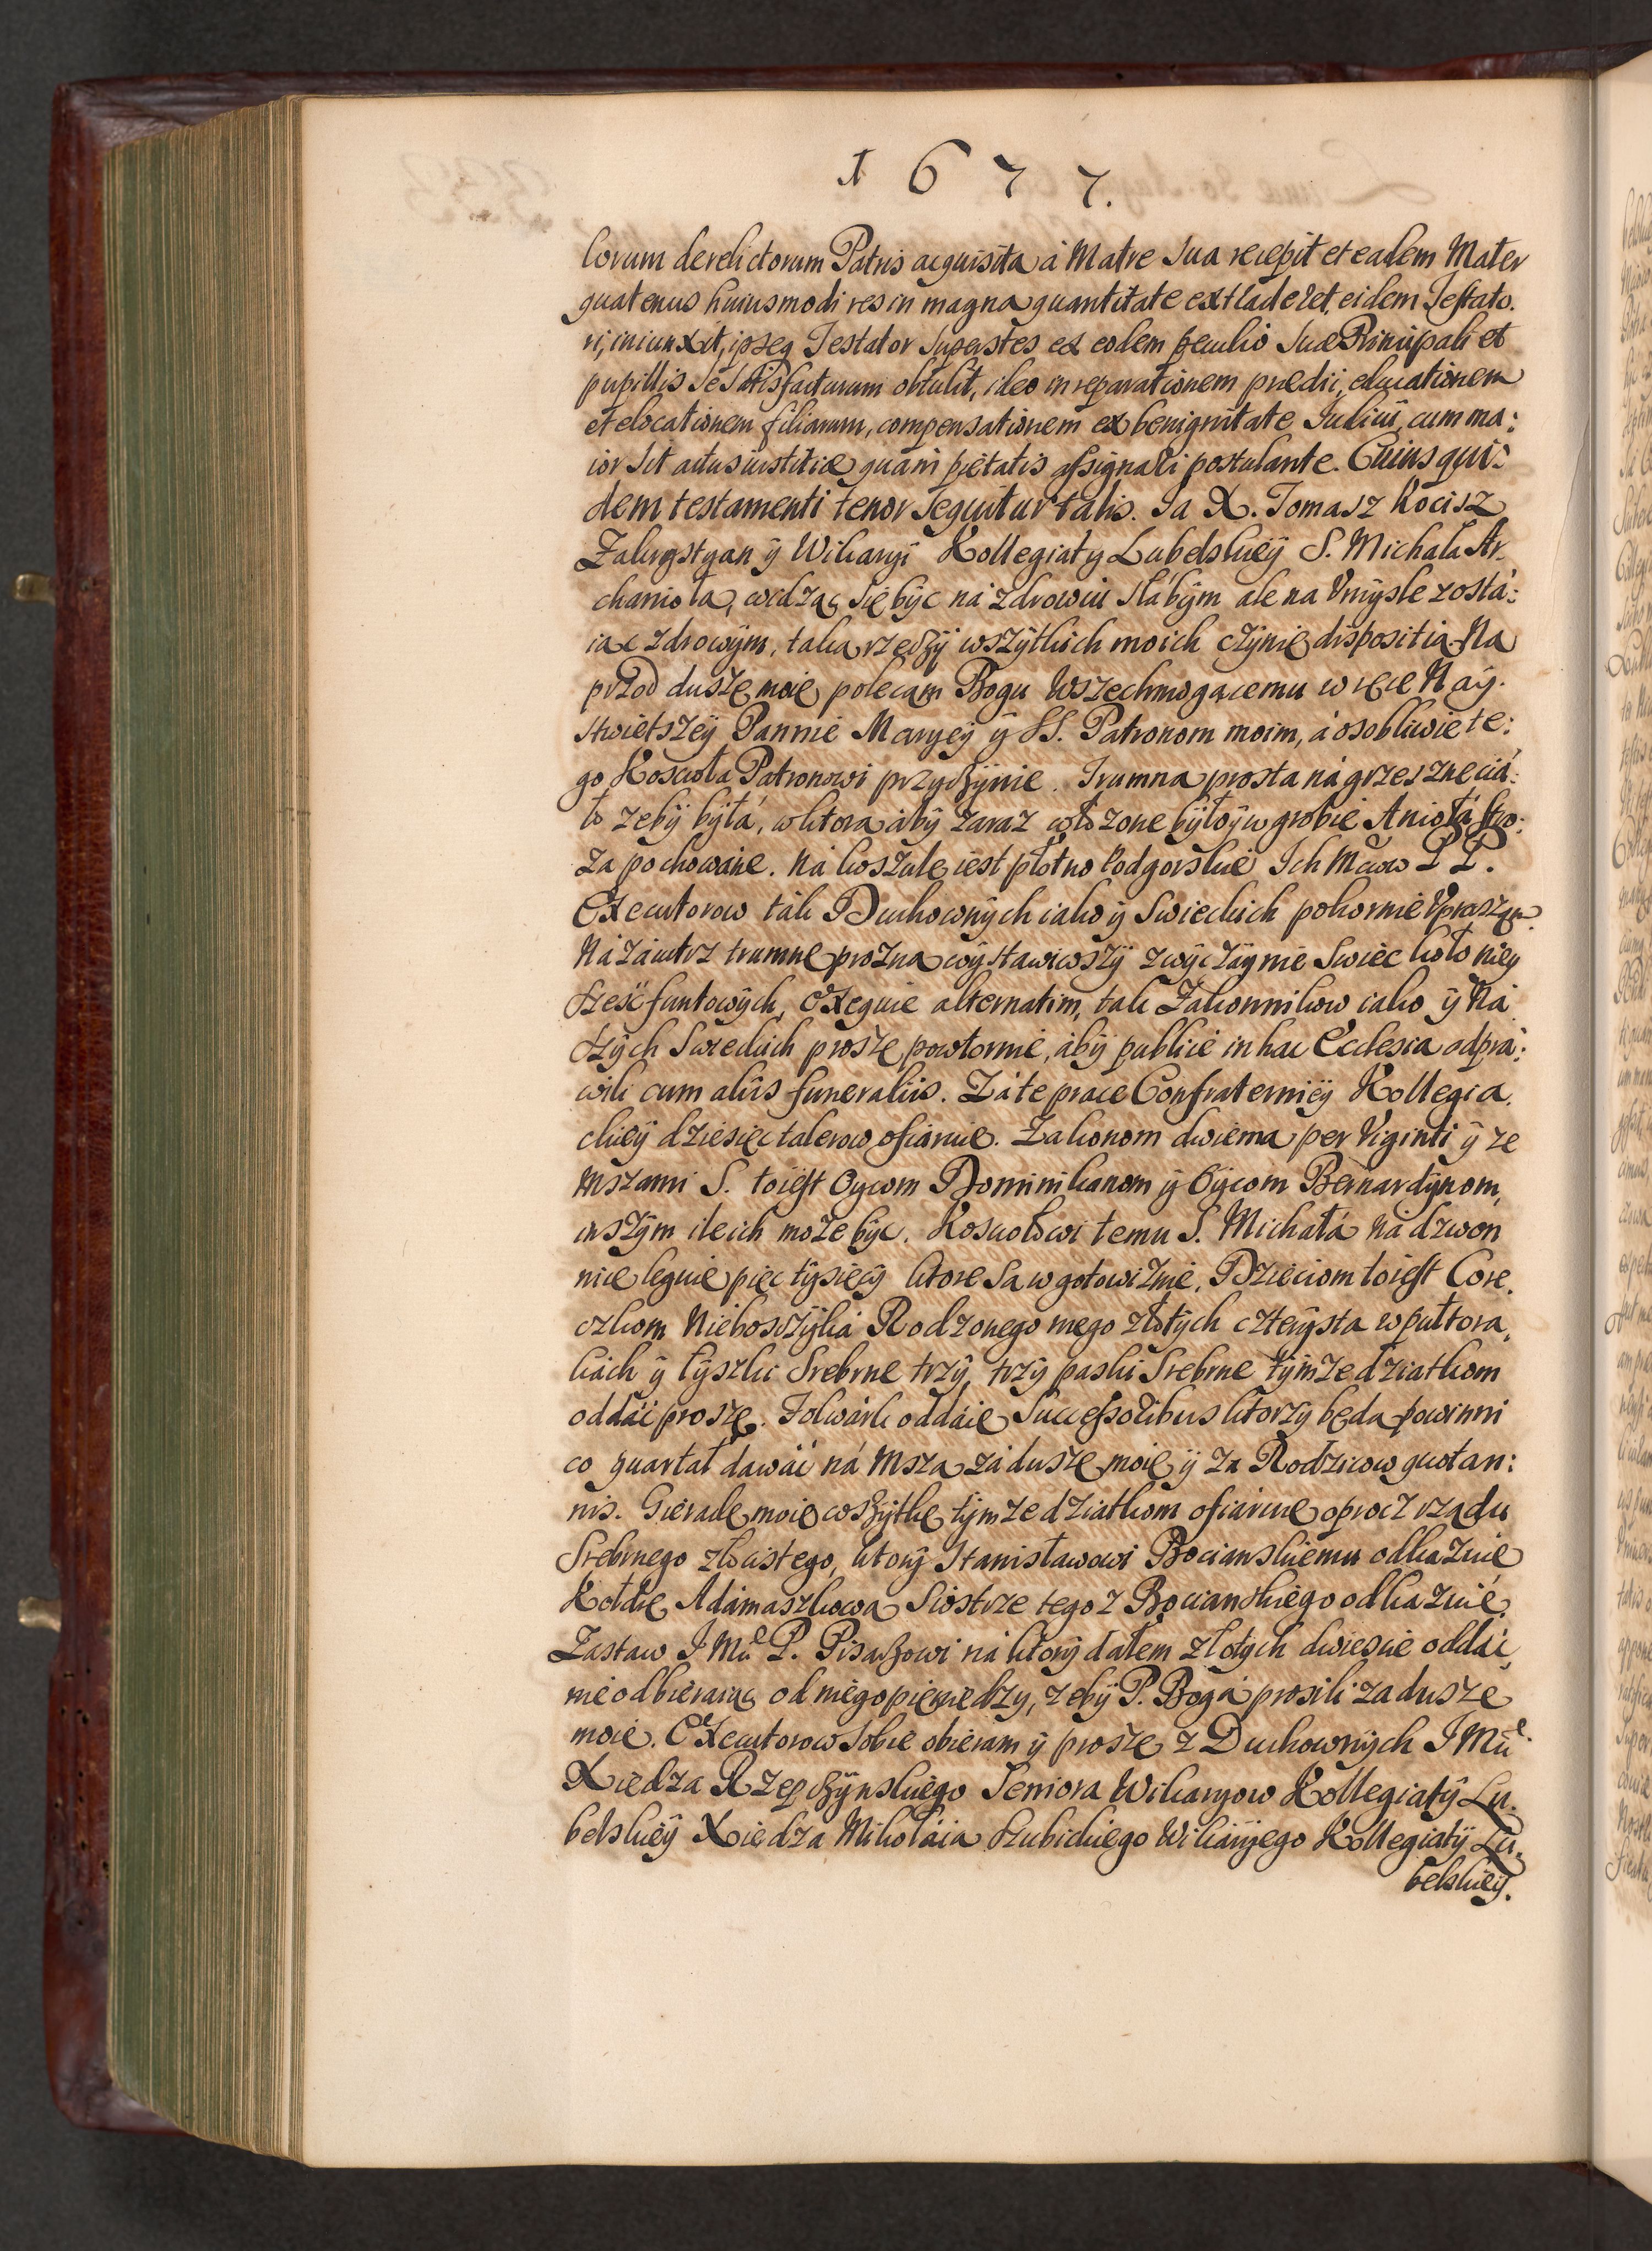 1677.
lorum derelictorum Patris acquisita à Matre Sua recepit et eadem Mater
quatenus huiusmodi res in magna quantitate extraderet, eidem Testato.
ri, iniunxit, ipseq Testator Superstes ex eodem peculio Suae Principali et
pupillis Se Satisfacturum obtulit, ideo in reparationem praedii, educationem
et elocationem filiarum, compensationem ex benignitate Iudicii, cum ma:
ior Sit actus iustitiae quàm pietatis assignari postulante. Cuius qui:
dem testamenti tenor Sequitur talis. Ia X. Tomasz Kocisz
Zakrystyan ÿ Wikaryi Kollegiaty Lubelskieÿ S. Michała Ar.
chanioła, widząc Się bÿc ná zdrowiu Słábÿm ale na Vmÿsle zostá:
iąc zdrowÿm, taką rzeczÿ wszÿtkich moich czÿnię dispositią. Na
przod duszę moię polecam Bogu Wszechmogącemu w ręce Náÿ.
Swiętszeÿ Pannie Maryeÿ ÿ SS. Patronom moim, á osobliwie te:
go Koscioła Patronowi przyczÿnie. Trumna prosta ná grzeszne ciá:
ło żebÿ bÿłá, w ktorą ábÿ zaraz włożone bÿło ÿ w grobie Aniołá Stro:
za pochowáne. Ná koszulę iest płotno Podgorskie Ich Mciow P P.
Exekutorow ták Duchownÿch iako ÿ Swieckich pokornie Vpraszam.
Ná záiutrz trumnę prozną wÿstawiwszÿ zwÿczaÿnie Swiec koło nieÿ
Szesc funtowÿch, Exequie alternatim, tak Zakonnikow iako ÿ Ná
szÿch Swieckich proszę powtornie, ábÿ publice in hac Ecclesia odprá:
wili cum aliis funeraliis. Zá te pracę Confraternieÿ Kollegia.
ckieÿ dziesięc talerow ofiáruię. Zakonom dwiema per Viginti ÿ ze
Mszami S. toiest Oÿcom Dominikanom ÿ Oÿcom Bernardÿnom,
inszÿm ile ich może bÿc. Kosciołowi temu S. Michałá ná dzwon
nicę leguię pięc tÿsięcÿ ktore Są w gotowiznie. Dzieciom toiest Core.
czkom Nieboszczÿká Rodzonego mego złotÿch czterÿsta w pułtora.
kách ÿ łÿszki Srebrne trzÿ, trzÿ paski Srebrne tÿmze dziatkom
oddác proszę. Folwárk oddáię Successoribus ktorzÿ będą powinni
co quartał dawác ná Mszą zá duszę moię ÿ za Rodzicow quotan:
nis. Gieradę moię wszÿtkę tÿmze dziatkom ofiáruię oprocz rzędu
Srebrnego złocistego, ktorÿ Stanisławowi Bocianskiemu odkázuię
Kołdrę Adámaszkową Siostrze tegoz Bocianskiego odkázuię.
Zastaw I Mci P. Pisarzowi ná ktorÿ dałem złotÿch dwiescie oddác,
nie odbieraiąc od niego pieniędzy, zebÿ P. Bogá prosili za duszę
moię. Exekutorow Sobie obieram ÿ proszę z Duchownÿch I Mci
Xiędza Rzepczÿnskiego Seniora Wikaryow Kollegiatÿ Lu.
belskieÿ Xiędza Mikołáia Szubickiego Wikáryego Kollegiatÿ Lu.
belskieÿ.